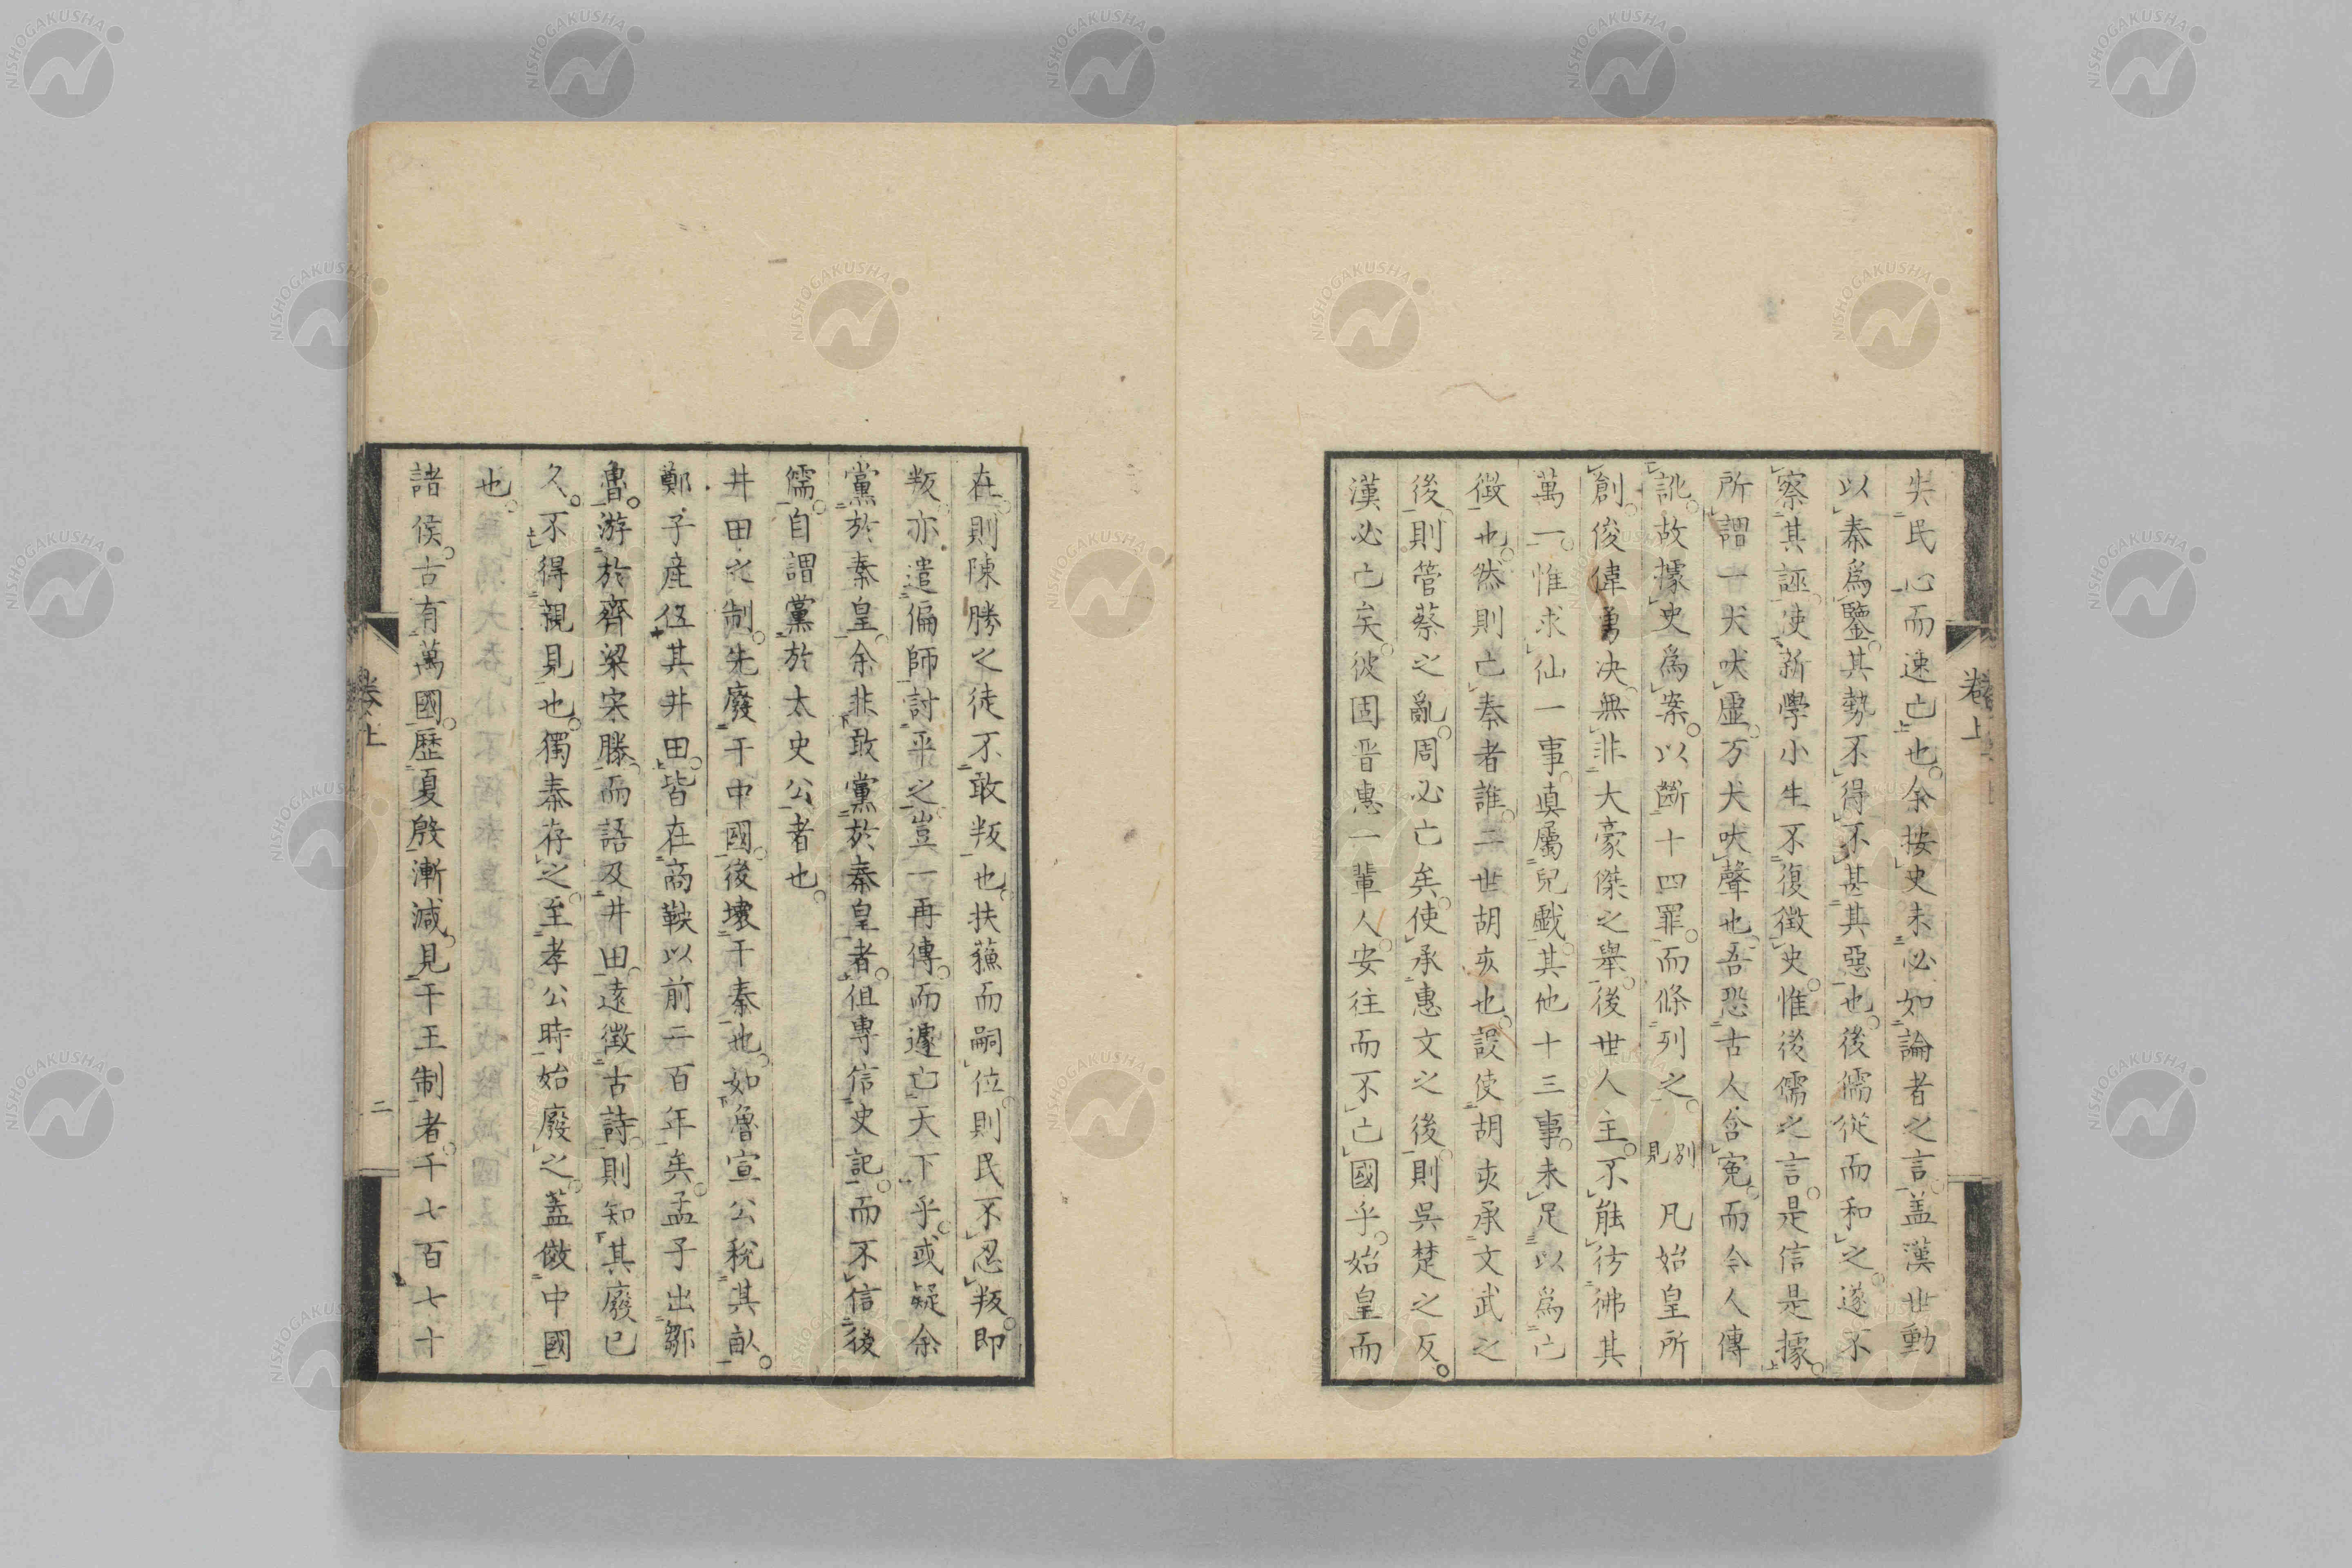 失民心而速亡也余按史未必如論者之言盖漢世動
以秦爲鑒其勢不得不甚其惡也後儒從而和之遂不
察其誣使新學小生不復徴史惟後儒之言是信是據
所謂一犬吠虚万犬吠聲也吾恐古人含寃而令人傳
訛故據史爲案以斷十四罪而條列之別見凡始皇所
創俊偉勇决無非大豪傑之舉後世人主不能彷彿其
萬一惟求仙一事真屬兒戲其他十三事未足以爲亡
徴也然則亡秦者誰二世胡亥也設使胡亥承文武之
後則管蔡之亂周必亡矣使承惠文之後則呉楚之反
漢必亡矣彼固晋惠一輩人安往而不亡國乎始皇而
卷上
在則陳勝之徒不敢叛也扶蘓而嗣位則民不忍叛即
叛亦遣偏師討平之豈一再傳而遽亡天下乎或疑余
黨於秦皇余非敢黨於秦皇者但專信史記而不信後
儒自謂黨於太史公者也
井田之制先廢于中國後壊于秦也如魯宣公稅其畝
鄭子産伍其井田皆在商鞅以前二百年矣孟子出鄒
魯游於齊梁宋滕而語及井田遠徴古詩則知其廢已
久不得親見也獨秦存之至孝公時始廢之盖倣中國
也
諸侯古有萬國歷夏殷漸減見于王制者千七百七十
卷上
二
NISHOGAKUSHA